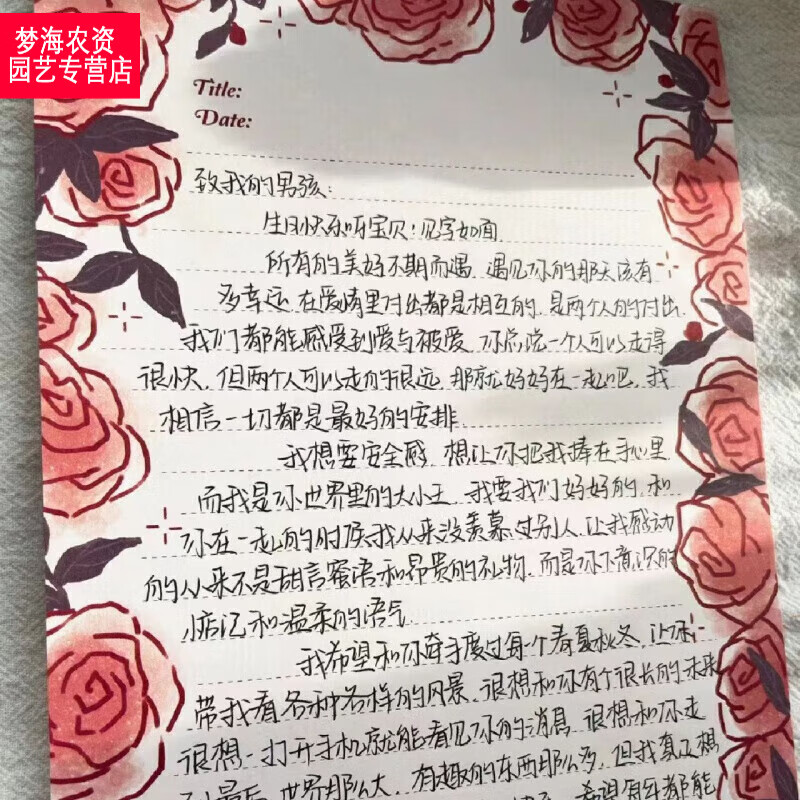 梦海农资
园艺专营店
Title:
Date:
致我的男孩:
生日快乐呀宝贝!见字如面
所有的美好不期而遇 遇见你的那天该有
多幸运.在爱情里付出都是相互的.是两个人的付出.
我们都能感受到爱与被爱.你总说一个人可以走得
很快.但两个人可以走的很远.那就好好在一起吧.我
相信一切都是最好的安排
我想要安全感 想让你把我捧在手心里
而我是你世界里的大小王.我要我们好好的.和
你在一起的时候我从来没羡慕过别人.让我感动
的从来不是甜言蜜语和昂贵的礼物.而是你下意识的
惦记和温柔的语气
我希望和你牵手度过每一个春夏秋冬.让你
带我看各种各样的风景.很想和你有个很长的未来
很想一打开手机就能看见你的消息 很想和你走
到最后 世界那么大.有趣的东西那么多.但我真正想
希望每年都能